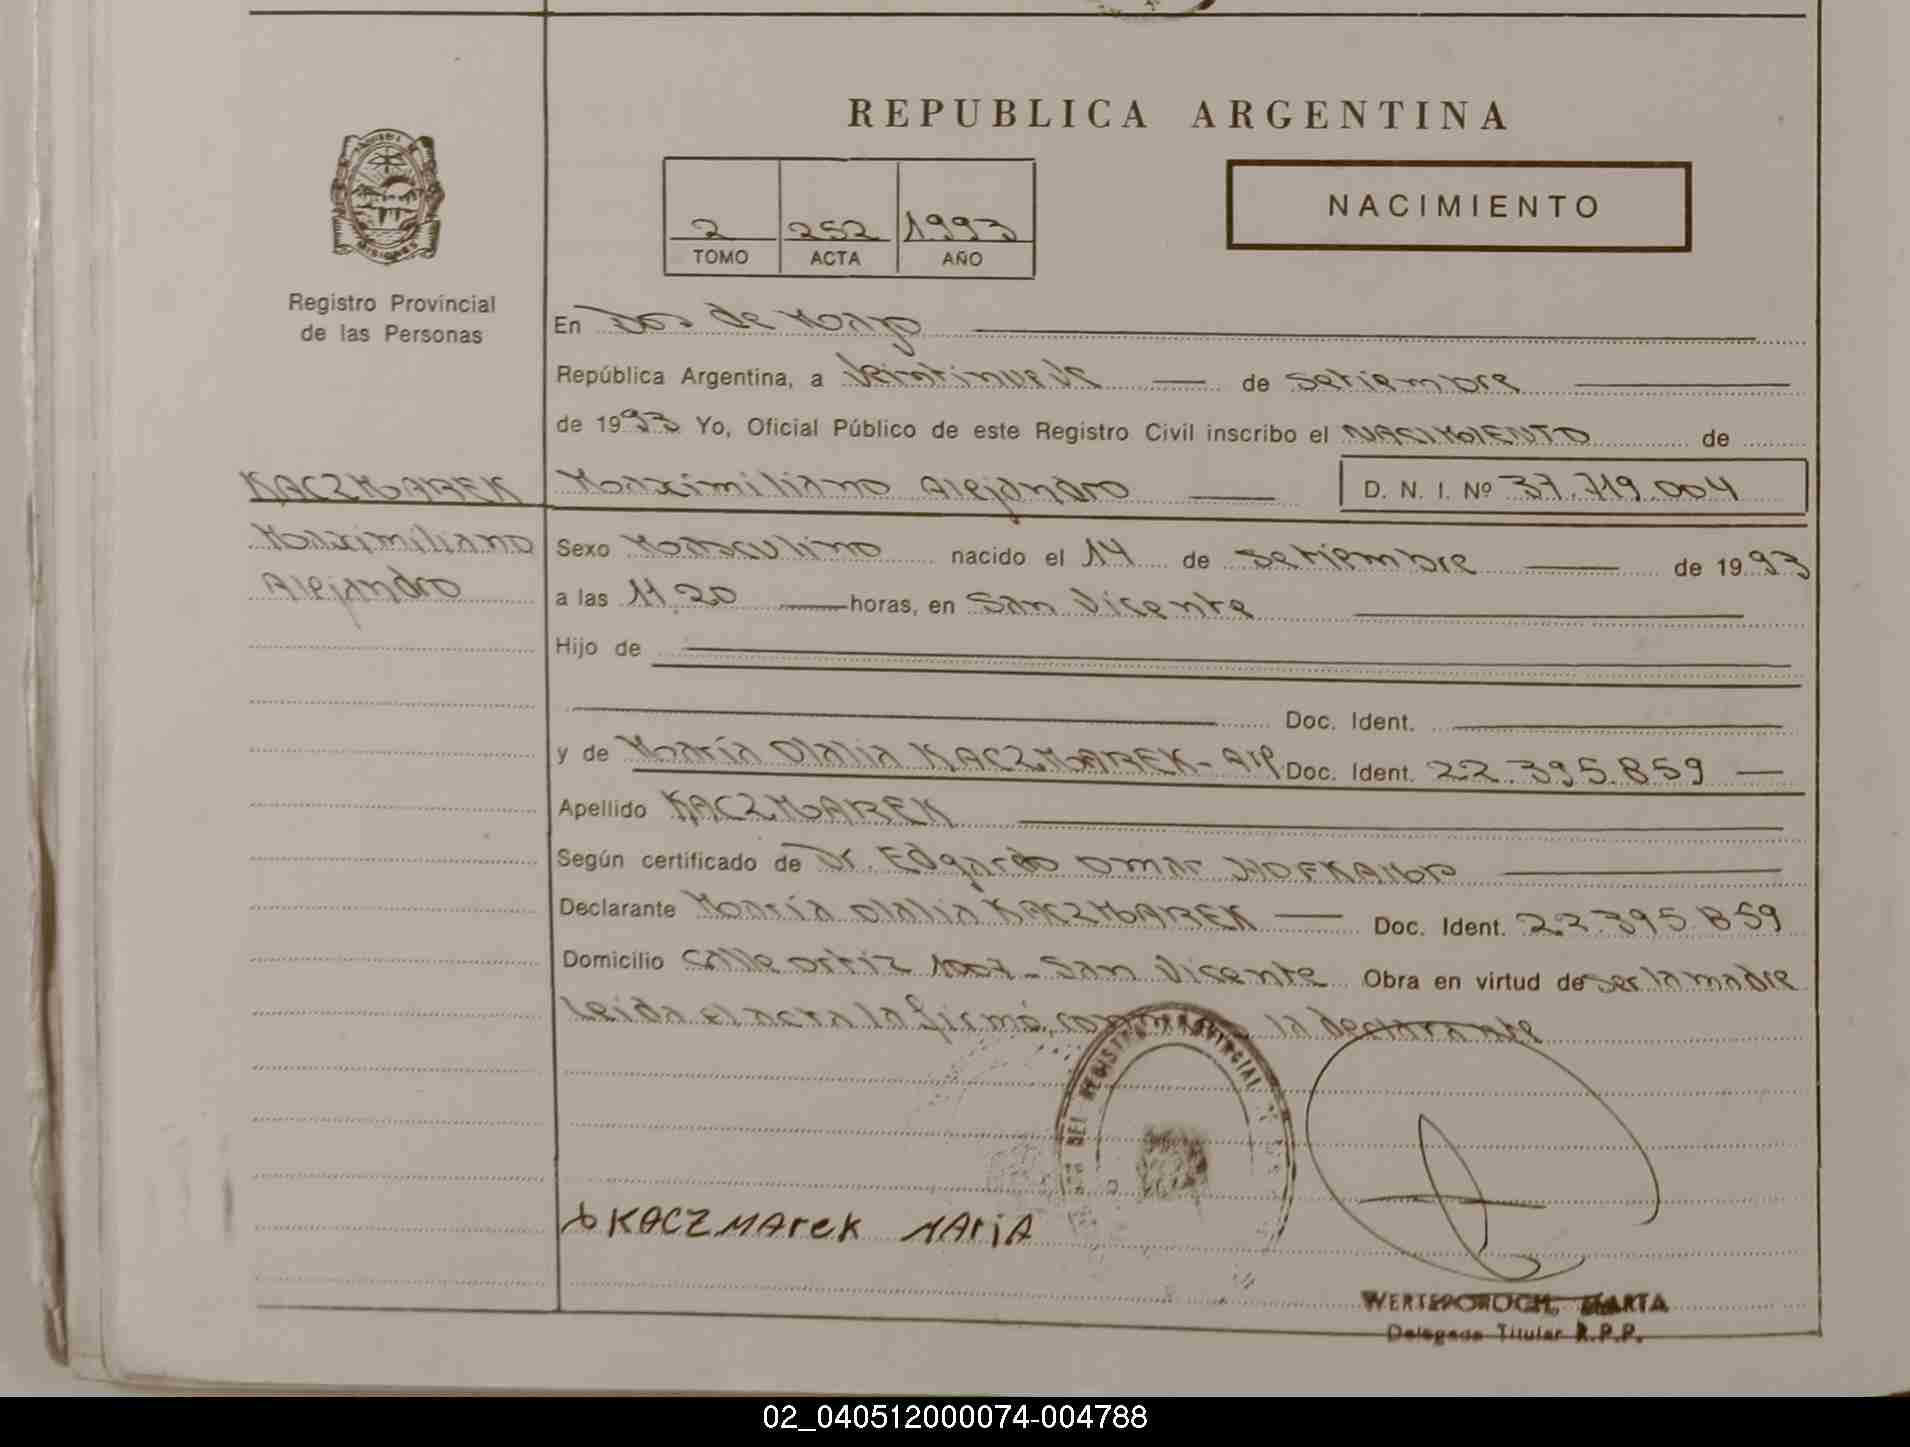 REPUBLICA ARGENTINA
NACIMIENTO
2 252 1993
TOMO ACTA AÑO
Registro Provincial
de las Personas
En Dos de Mayo
República Argentina, a Veintinueve de Setiembre
de 1993 Yo, Oficial Público de este Registro Civil inscribo el NACIMIENTO de
KACZMAREK Maximiliano Alejandro D. N. I. Nº 37.719.004
Maximiliano
Alejandro
Sexo Masculino nacido el 14 de Setiembre de 1993
a las 11,20 horas, en San Vicente
Hijo de
Doc. Ident.
y de María Olalia KACZMAREK- Arg. Doc. Ident. 22.395.859
Apellido KACZMAREK
Según certificado de Dr. Edgardo Omar
Declarante María Olalia KACZMAREK Doc. Ident. 22.395.859
Domicilio Calle Ortiz 1007 - San Vicente Obra en virtud de ser la madre
Leida el acta la firmó, conmigo la declarante
DEL REGISTRO PROVINCIAL
KACZMArek MAriA
MARTA
Delegada Titular R.P.P.
02_040512000074-004788